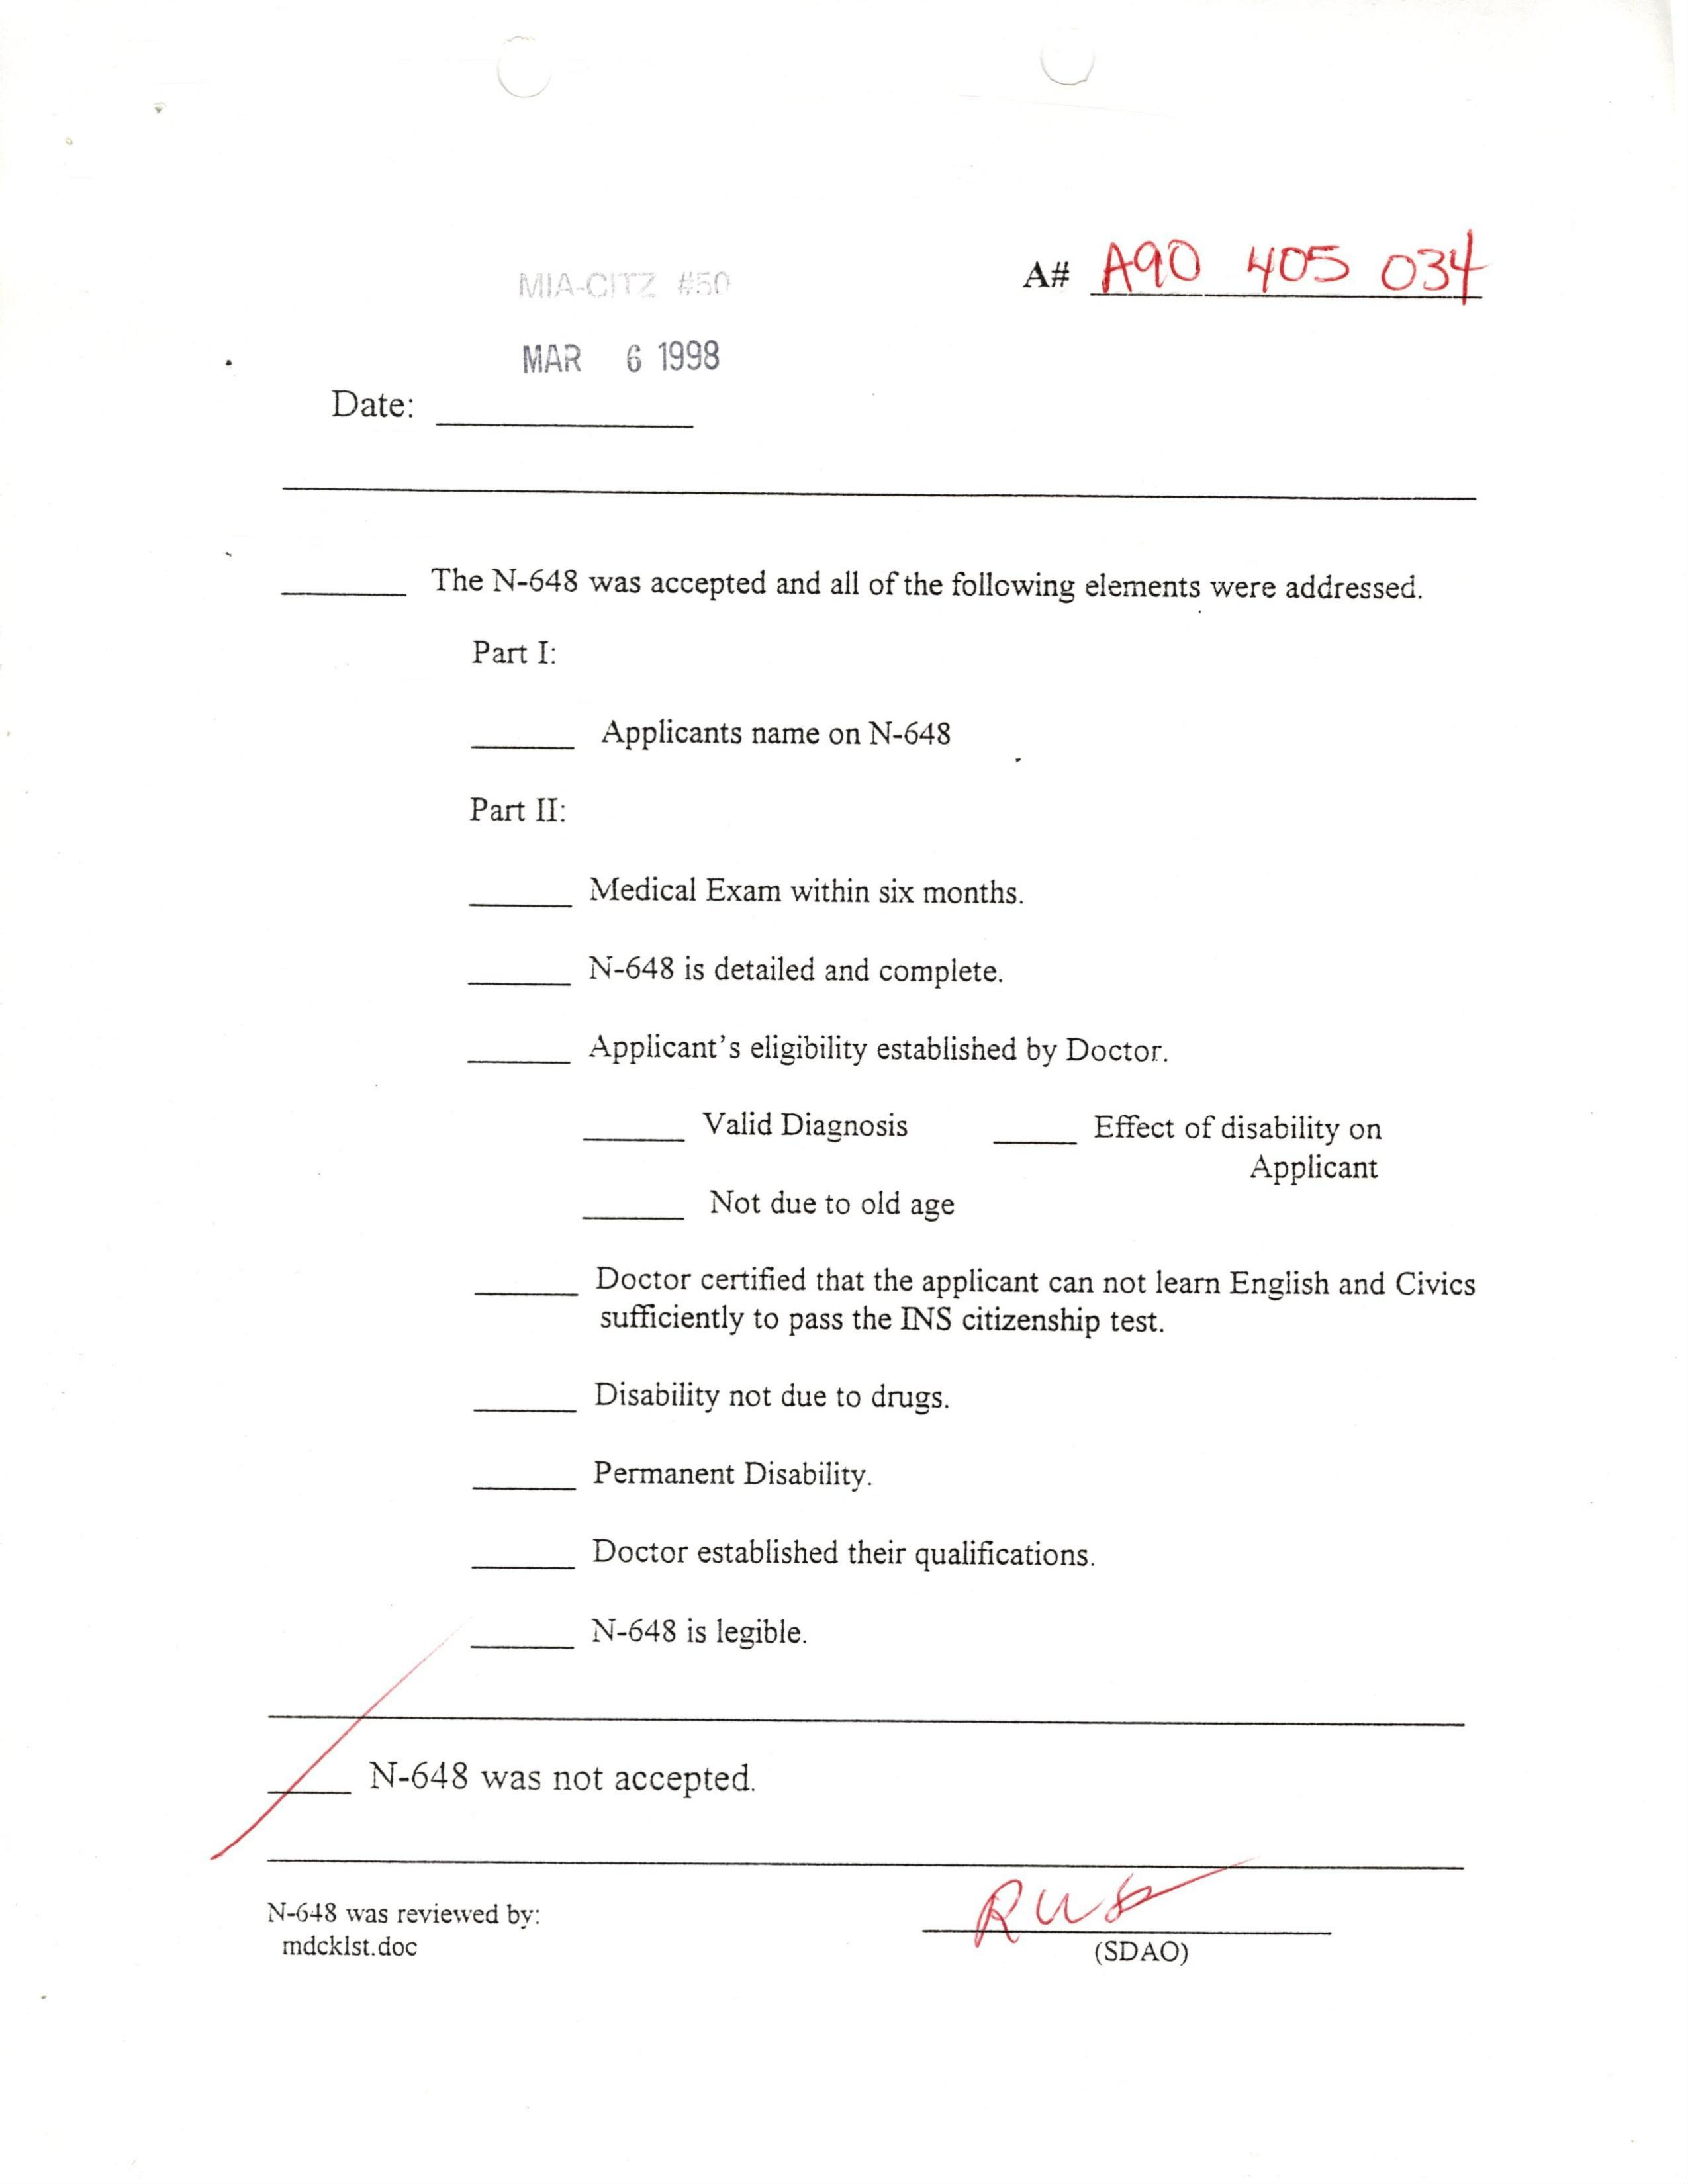 MIA-CITZ #50
A# A90 405 034
MAR 6 1998
Date:
The N-648 was accepted and all of the following elements were addressed.
Part I:
Applicants name on N-648
Part II:
Medical Exam within six months.
N-648 is detailed and complete.
Applicant's eligibility established by Doctor.
Valid Diagnosis Effect of disability on
Applicant
Not due to old age
Doctor certified that the applicant can not learn English and Civics
sufficiently to pass the INS citizenship test.
Disability not due to drugs.
Permanent Disability.
Doctor established their qualifications.
N-648 is legible.
N-648 was not accepted.
N-648 was reviewed by:
mdcklst.doc
(SDAO)